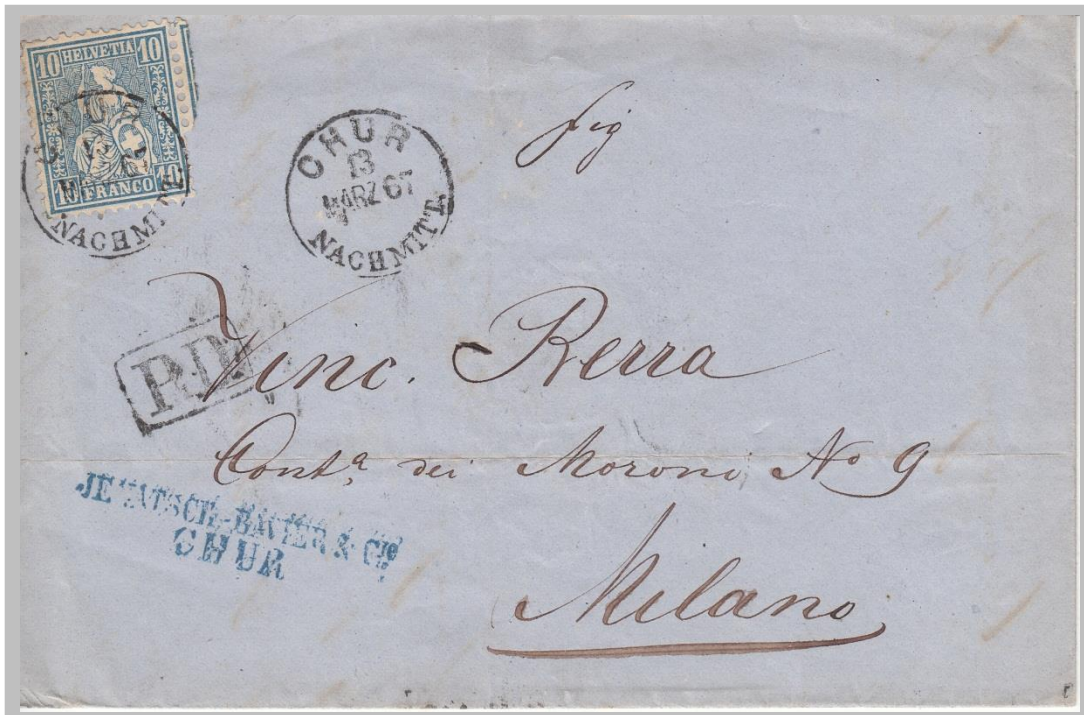 10 HELVETIA 10
10 FRANCO 10
NACHMITT
CHUR
13
MÄRZ 67
NACHMITT.
Sig
P.D.
Vinc. Rerra
Cont.ª dei Moroni No 9
Milano
JENATSCH-BAVIER & Cie
CHUR